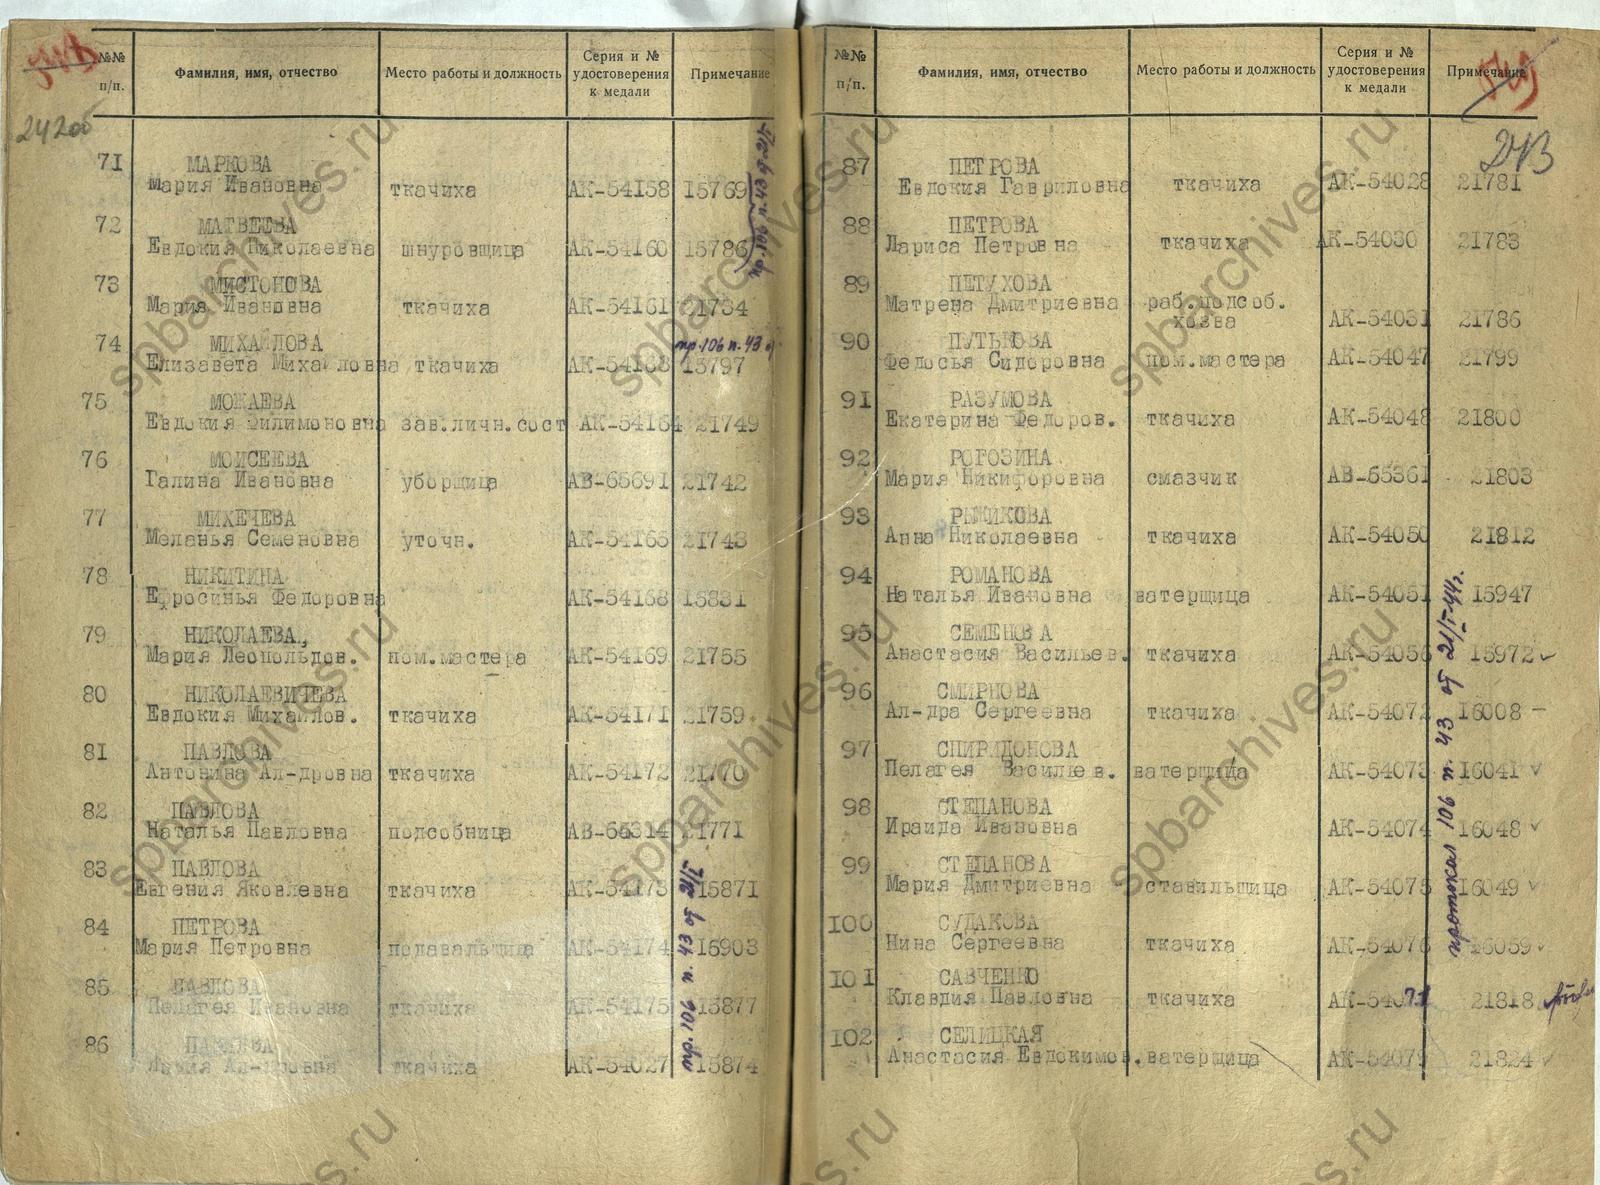 242об
№№ п/п.
Фамилия, имя, отчество
Место работы и должность
Серия и № удостоверения к медали
Примечание
71 МАРКОВА
Мария Ивановна ткачиха АК-54158 15769
72 МАТВЕЕВА
Евдокия Николаевна шнуровщица АК-54160 15786
73 МИСТОНОВА
Мария Ивановна ткачиха АК-54161 21734
74 МИХАЙЛОВА пр.106 п.43
Елизавета Михайловна ткачиха АК-54163 15797
75 МОЖАЕВА
Евдокия Филимоновна зав.личн.сост АК-54164 21749
76 МОИСЕЕВА
Галина Ивановна уборщица АВ-65691 21742
77 МИХЕЧЕВА
Меланья Семеновна уточн. АК-54165 21743
78 НИКИТИНА
Ефросинья Федоровна АК-54168 15831
79 НИКОЛАЕВА,
Мария Леопольдов. пом.мастера АК-54169 21755
80 НИКОЛАЕВИЧЕВА
Евдокия Михайлов. ткачиха АК-54171 21759
81 ПАВЛОВА
Антонина Ал-дровна ткачиха АК-54172 21770
82 ПАВЛОВА
Наталья Павловна подсобница АВ-65314 21771
83 ПАВЛОВА
Евгения Яковлевна ткачиха АК-54173 15871
84 ПЕТРОВА
Мария Петровна подавальщица АК-54174 15903
85 ПАВЛОВА
Пелагея Ивановна ткачиха АК-54175 15877
86 ПАВЛОВА
Мария Ал-дровна ткачиха АК-54027 15874
пр.106 п.43 от 21/I
пр.106 п.43 от 21/I
243
№№ п/п.
Фамилия, имя, отчество
Место работы и должность
Серия и № удостоверения к медали
Примечание
87 ПЕТРОВА
Евдокия Гавриловна ткачиха АК-54028 21781
88 ПЕТРОВА
Лариса Петровна ткачиха АК-54030 21783
89 ПЕТУХОВА
Матрена Дмитриевна раб.подсоб.
хозва АК-54031 21786
90 ПУТЬКОВА
Федосья Сидоровна пом.мастера АК-54047 21799
91 РАЗУМОВА
Екатерина Федоров. ткачиха АК-54048 21800
92 РОГОЗИНА
Мария Никифоровна смазчик АВ-65361 21803
93 РЫЖИКОВА
Анна Николаевна ткачиха АК-54050 21812
94 РОМАНОВА
Наталья Ивановна ватерщица АК-54051 15947
95 СЕМЕНОВА
Анастасия Васильев. ткачиха АК-54056 15972
96 СМИРНОВА
Ал-дра Сергеевна ткачиха АК-54072 16008
97 СПИРИДОНОВА
Пелагея Васильев. ватерщица АК-54073 16041
98 СТЕПАНОВА
Ираида Ивановна АК-54074 16048
99 СТЕПАНОВА
Мария Дмитриевна ставильщица АК-54075 16049
100 СУДАКОВА
Нина Сергеевна ткачиха АК-54076 16059
101 САВЧЕНКО
Клавдия Павловна ткачиха АК-54077 21818
102 СЕЛИЦКАЯ
Анастасия Евдокимов. ватерщица АК-54079 21824
протокол 106 п. 43 от 21/I-44г.
spbarchives.ru